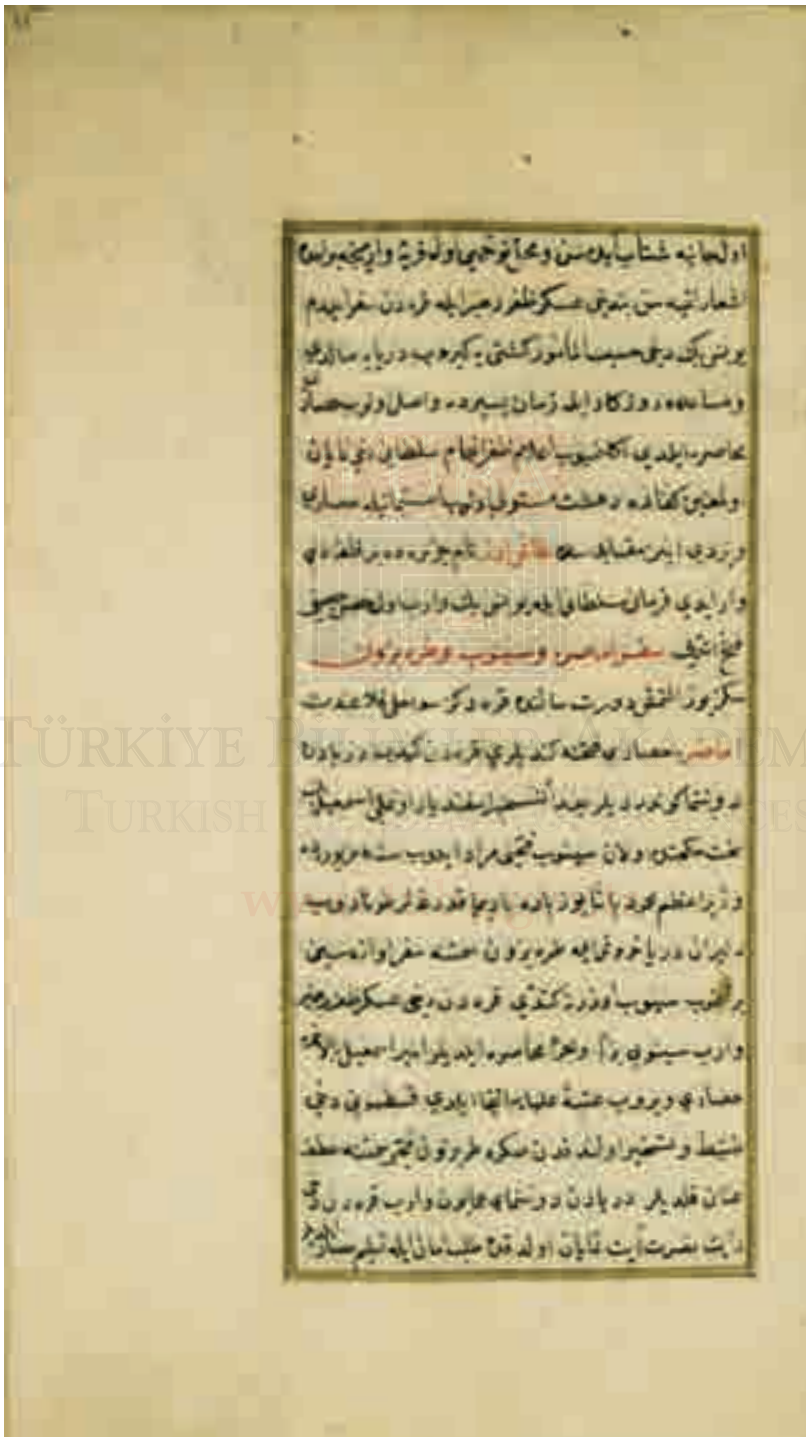 اول جانبه شتاب ایله سن و محل توجهی اولد قریه واریجه بونده
اشعار ایتیه سن بندخی عسکر ظفر رهبر ایله قره دن سفر ایدرم
یونس بک دخی حسب المأمور کشتی یه کیروب دریایه صالدی
و مساعده روزکار ایله زمان یسیرده واصل اولوب حصاری
محاصره ایلدی اکا اعلام ظفر انجام سلطانی دخی نمایان
اولمغین کفاره دهشت مستولی اولیب استیمانیله حصاری
ویردی اینز مقابله سنده طاشوز نام جزیره ده بر قلعه دخی
وار ایدی فرمان سلطانی ایله یونس بک واروب اول حصن حصین
فتح ایتدی سفر اماصره و سینوب و طربزون
سکز یوز التمش دورت سالنده قره دکز سواحلی قلاعندن
اماصره حصاری فتحنه کندیلری قره دن کیدوب دریادن
دوننما کوندردیلر بعد التسخیر اسفندیار اوغلی اسمعیل بک
تحت حکمنده اولان سینوب فتحی مراد ایدوب سنه مزبوره ده
وزیر اعظم محمود پاشا یوز پاره یاریجا قدرغه لر طوناتدروب
دلیران دریا خروش ایله طربزون سمتنه سفر اوازه سینی
سینوب اوزرینه کتدی قره دن دخی عسکر ظفر رهبر
واروب سینوبی برا و بحرا محاصره ایلدیلر امیر اسمعیل بالاخره
حصاری ویروب عتبهٔ علیایه التجا ایلدی قسطمونی دخی
ضبط و تسخیر اولندقدن صکره طربزون فتحی سمتنه عطف
عنان قلدیلر دریادن دوننمای همایون واروب قره دن دخی
رایت نصرت آیت نمایان اولدقده طلب امان ایله تسلیم حصار
TÜRKİYE BİLİMLER AKADEM
TURKISH
www